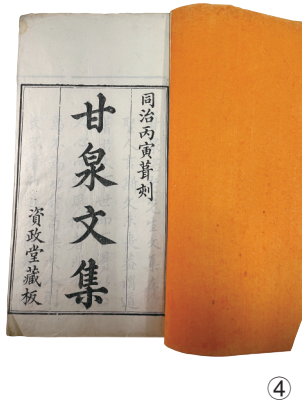 同治丙寅葺刻
甘泉文集
資政堂藏板
④